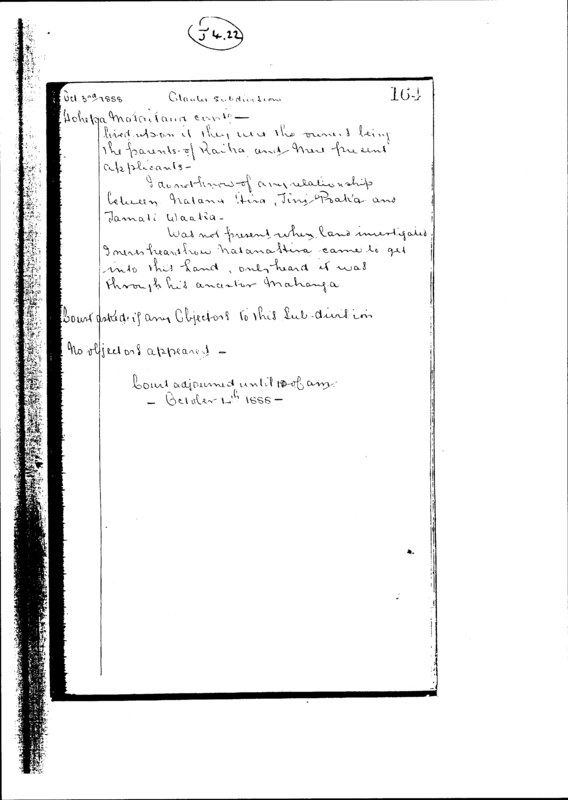 J 4.22
Oct 3rd 1888 Subdivision 164
Hohepa contd —
lived upon it they were the owners being
the parents of Raiha and Mere present
applicants —
I do not know of any relationship
between Natana Hira, and
Tamati Waaka —
Was not present when land investigated
I never heard how Natana Hira came to get
into this land, only heard it was
through his ancestor Mahanga
Court asked if any Objectors to this Sub-division
No objectors appeared —
Court adjourned until 10 of am:
— October 4th 1888 —